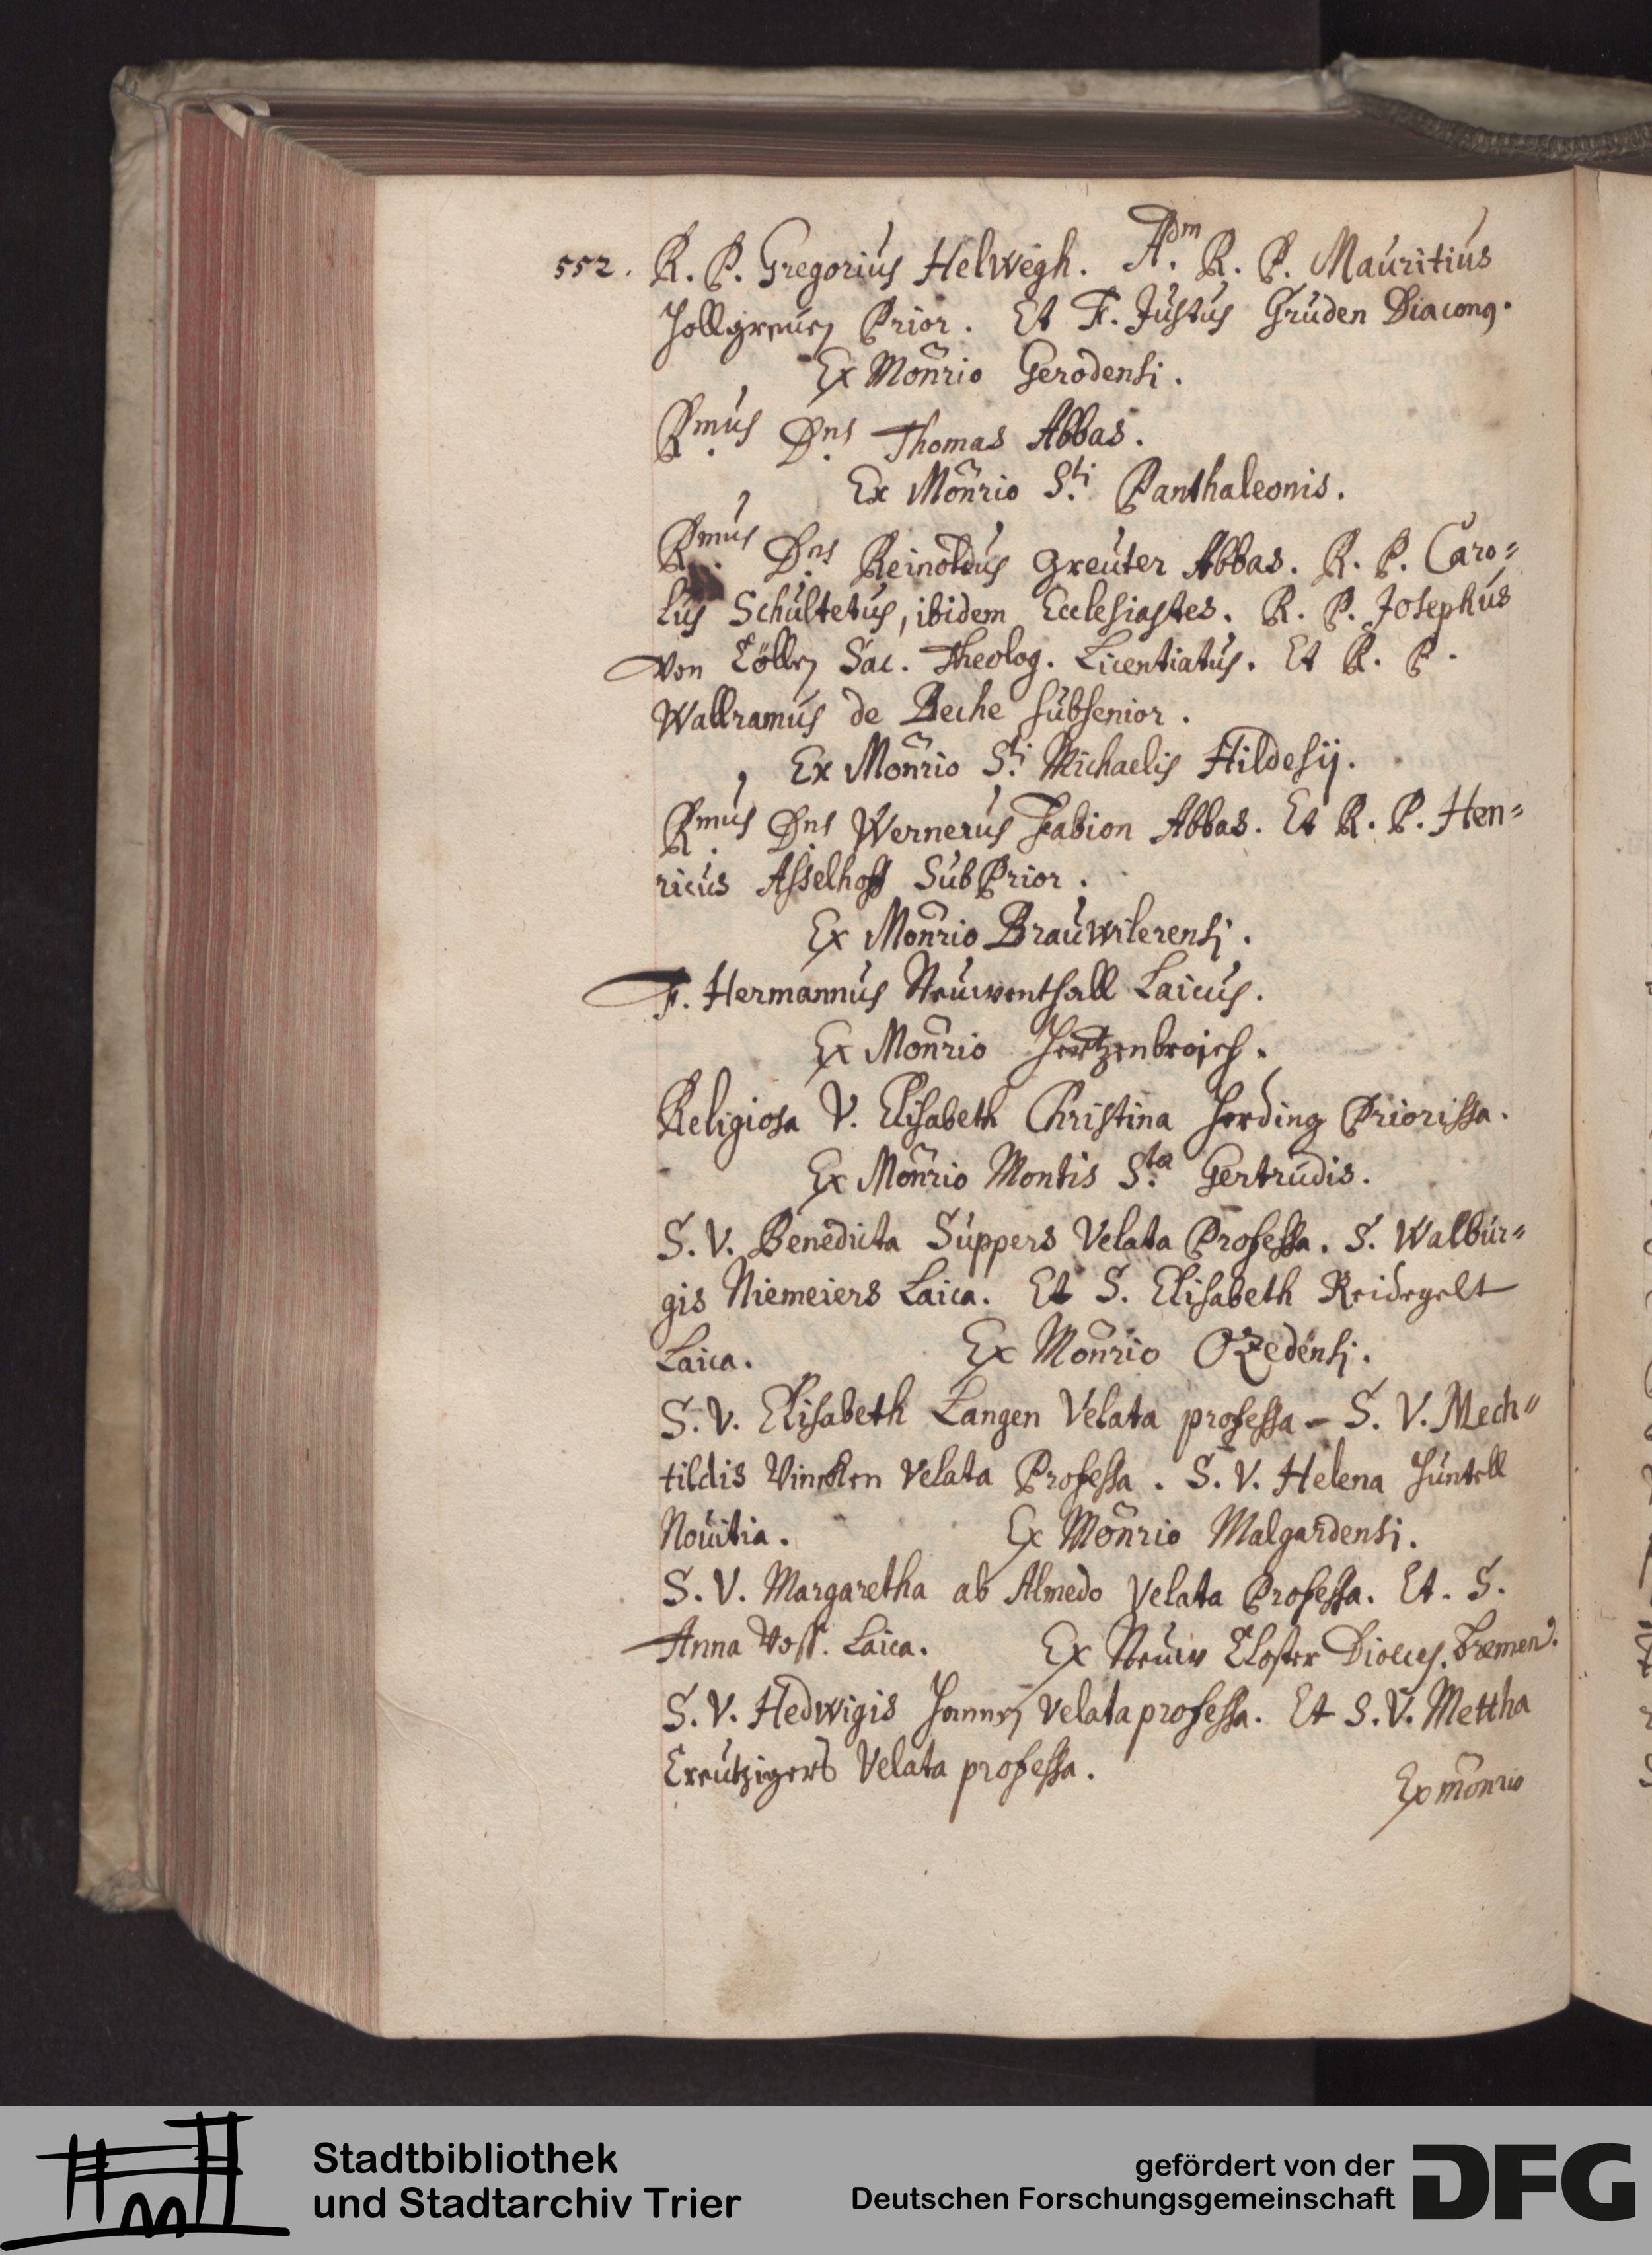 552. R. P. Gregorius Helwegh. A.dm R. P. Mauritius
Hollgreuen Prior. Et F. Justus Gruden Diacon9.
Ex Monrio Gerodensi.
R.mus D.ns Thomas Abbas.
Ex Monrio S.ti Panthaleonis.
R.mus D.ns Reinoldus Greuter Abbas. R. P. Caro=
lus Schultetus, ibidem Ecclesiastes. R. P. Josephus
von Cöllen Sac. Theolog. Licentiatus. Et R. P.
Wallramus de Beche subsenior.
Ex Monrio S.ti Michaelis Hildesij.
R.mus D.ns Wernerus Fabion Abbas. Et R. P. Hen=
ricus Asselhoff SubPrior.
Ex Monrio Brauwilerensi.
F. Hermannus Neuwenthall Laicus.
Ex Monrio Hertzenbroich.
Religiosa V. Elisabeth Christina Herding Priorissa.
Ex Monrio Montis S.ta Gertrudis.
S. V. Benedicta Suppers Velata Professa. S. Walbur=
gis Niemeiers Laica. Et S. Elisabeth Reidegelt
Laica. Ex Monrio Ozedensi.
S. V. Elisabeth Langen Velata professa - S. V. Mech=
tildis Vincken Velata Professa. S. V. Helena Huntell
Nouitia. Ex Monrio Malgardensi.
S. V. Margaretha ab Almedo Velata Professa. Et. S.
Anna Voss. Laica. Ex Neuw Closter Dioeces. Bremen.
S. V. Hedwigis Hannen Velata professa. Et S. V. Mettha
Creutzigers Velata professa.
Ex monrio
Stadtbibliothek
und Stadtarchiv Trier
gefördert von der
Deutschen Forschungsgemeinschaft
DFG